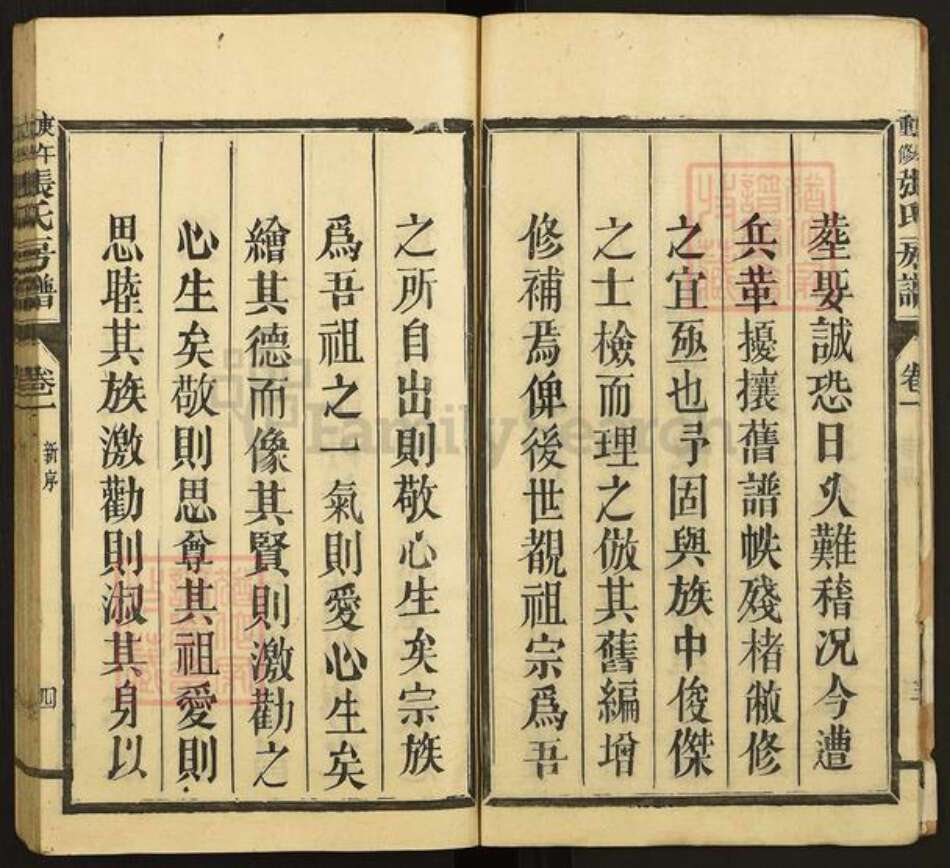 塟娶誠恐日久難稽况今遭
兵革擾攘舊譜帙殘楮敝修
之宜亟也予固與族中俊傑
之士檢而理之倣其舊編增
修補焉俾後世覩祖宗為吾
之所自出則敬心生矣宗族
為吾祖之一氣則愛心生矣
繪其德而像其賢則激勸之
心生矣敬則思尊其祖愛則
思睦其族激勸則淑其身以
庚午張氏房譜
卷一
新序
四
FamilySearch